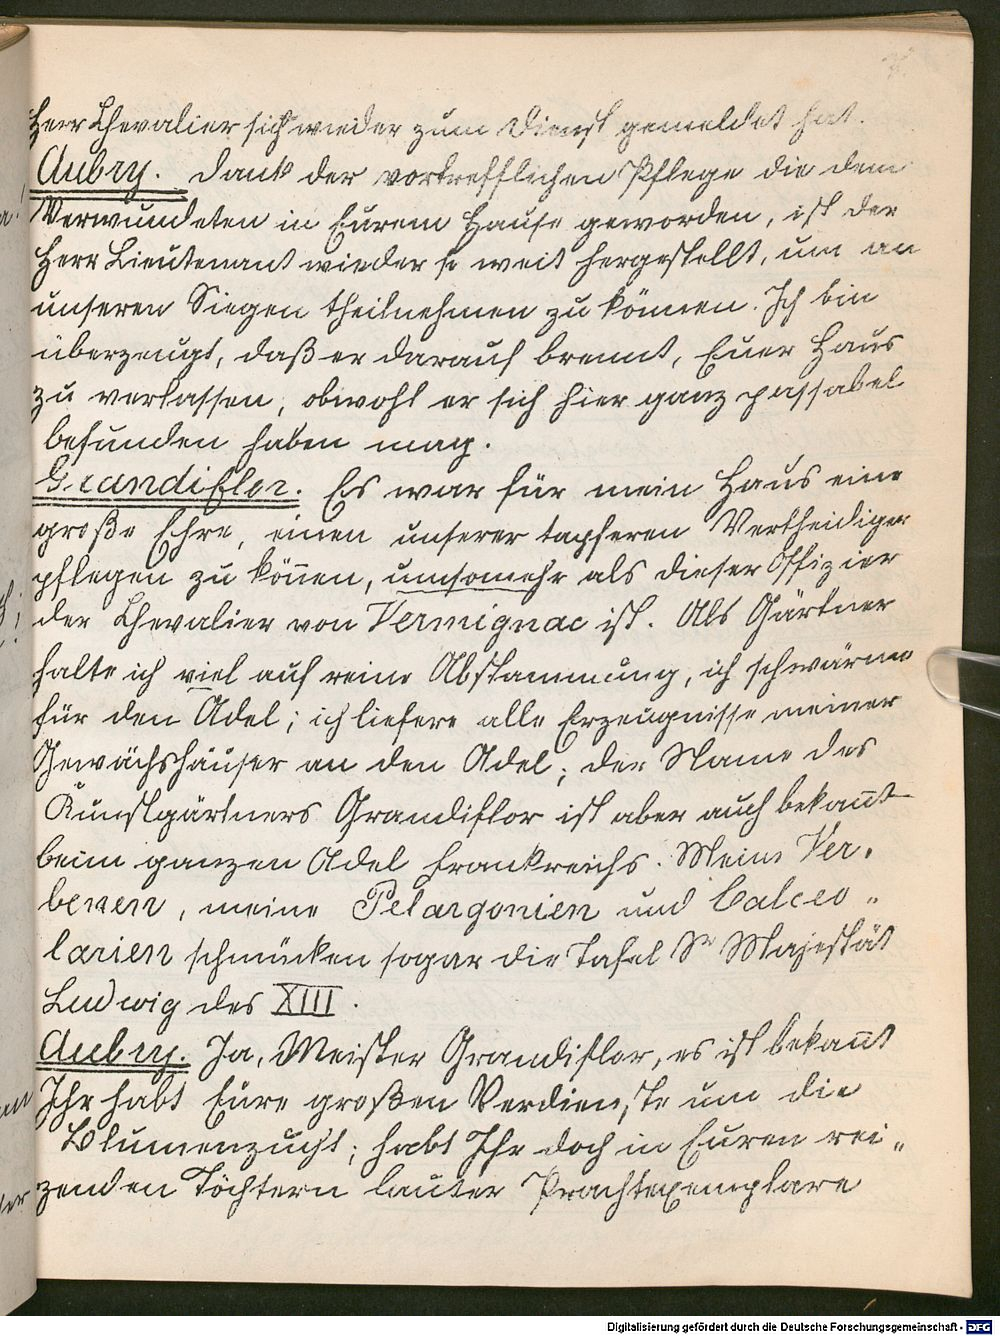 7.
Herr Chevalier sich wieder zum Dienst gemeldet hat.
Aubry. Dank der vortrefflichen Pflege die dem
Verwundeten in Eurem Hause geworden, ist der
Herr Lieutenant wieder so weit hergestellt, um an
unseren Siegen theilnehmen zu können. Ich bin
überzeugt, daß er darauf brennt, Euer Haus
zu verlassen, obwohl er sich hier ganz passabel
befunden haben mag.
Grandiflor. Es war für mein Haus eine
große Ehre, einen unserer tapferen Vertheidiger
pflegen zu können, umsomehr als dieser Offizier
der Chevalier von Vermignac ist. Als Gärtner
halte ich viel auf reine Abstammung, ich schwärme
für den Adel; ich liefere alle Erzeugnisse meiner
Gewächshäuser an den Adel; der Name des
Kunstgärtners Grandiflor ist aber auch bekannt
beim ganzen Adel Frankreichs. Meine Ver-
benen, meine Pelargonien und Calceo-
larien schmücken sogar die Tafel Sr Majestät
Ludwig des XIII.
Aubry. Ja, Meister Grandiflor, es ist bekannt
Ihr habt Eure großen Verdienste um die
Blumenzucht; habt Ihr doch in Euren rei-
zenden Töchtern lauter Prachtexemplare
Digitalisierung gefördert durch die Deutsche Forschungsgemeinschaft - DFG